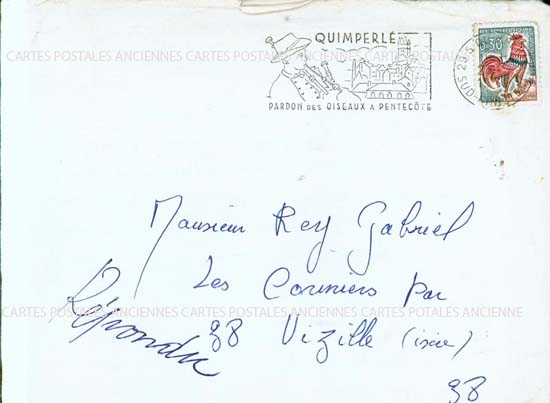 QUIMPERLÉ
PARDON DES OISEAUX A PENTECÔTE
0,30
CARTES POSTALES ANCIENNES CARTES POSTALES ANCIENNES CARTES POSTALES ANCIENNE
Monsieur Rey Gabriel
Les Corniers par
Répondu
38 Vizille (isère)
CARTES POSTALES ANCIENNES CARTES POSTALES ANCIENNES CARTES POTALES ANCIENNE
38